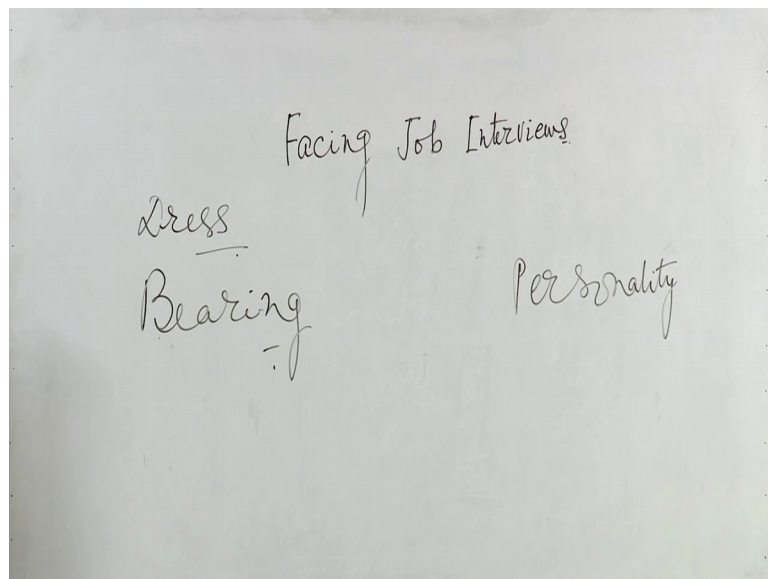 Facing Job Interviews
Dress
Bearing
Personality